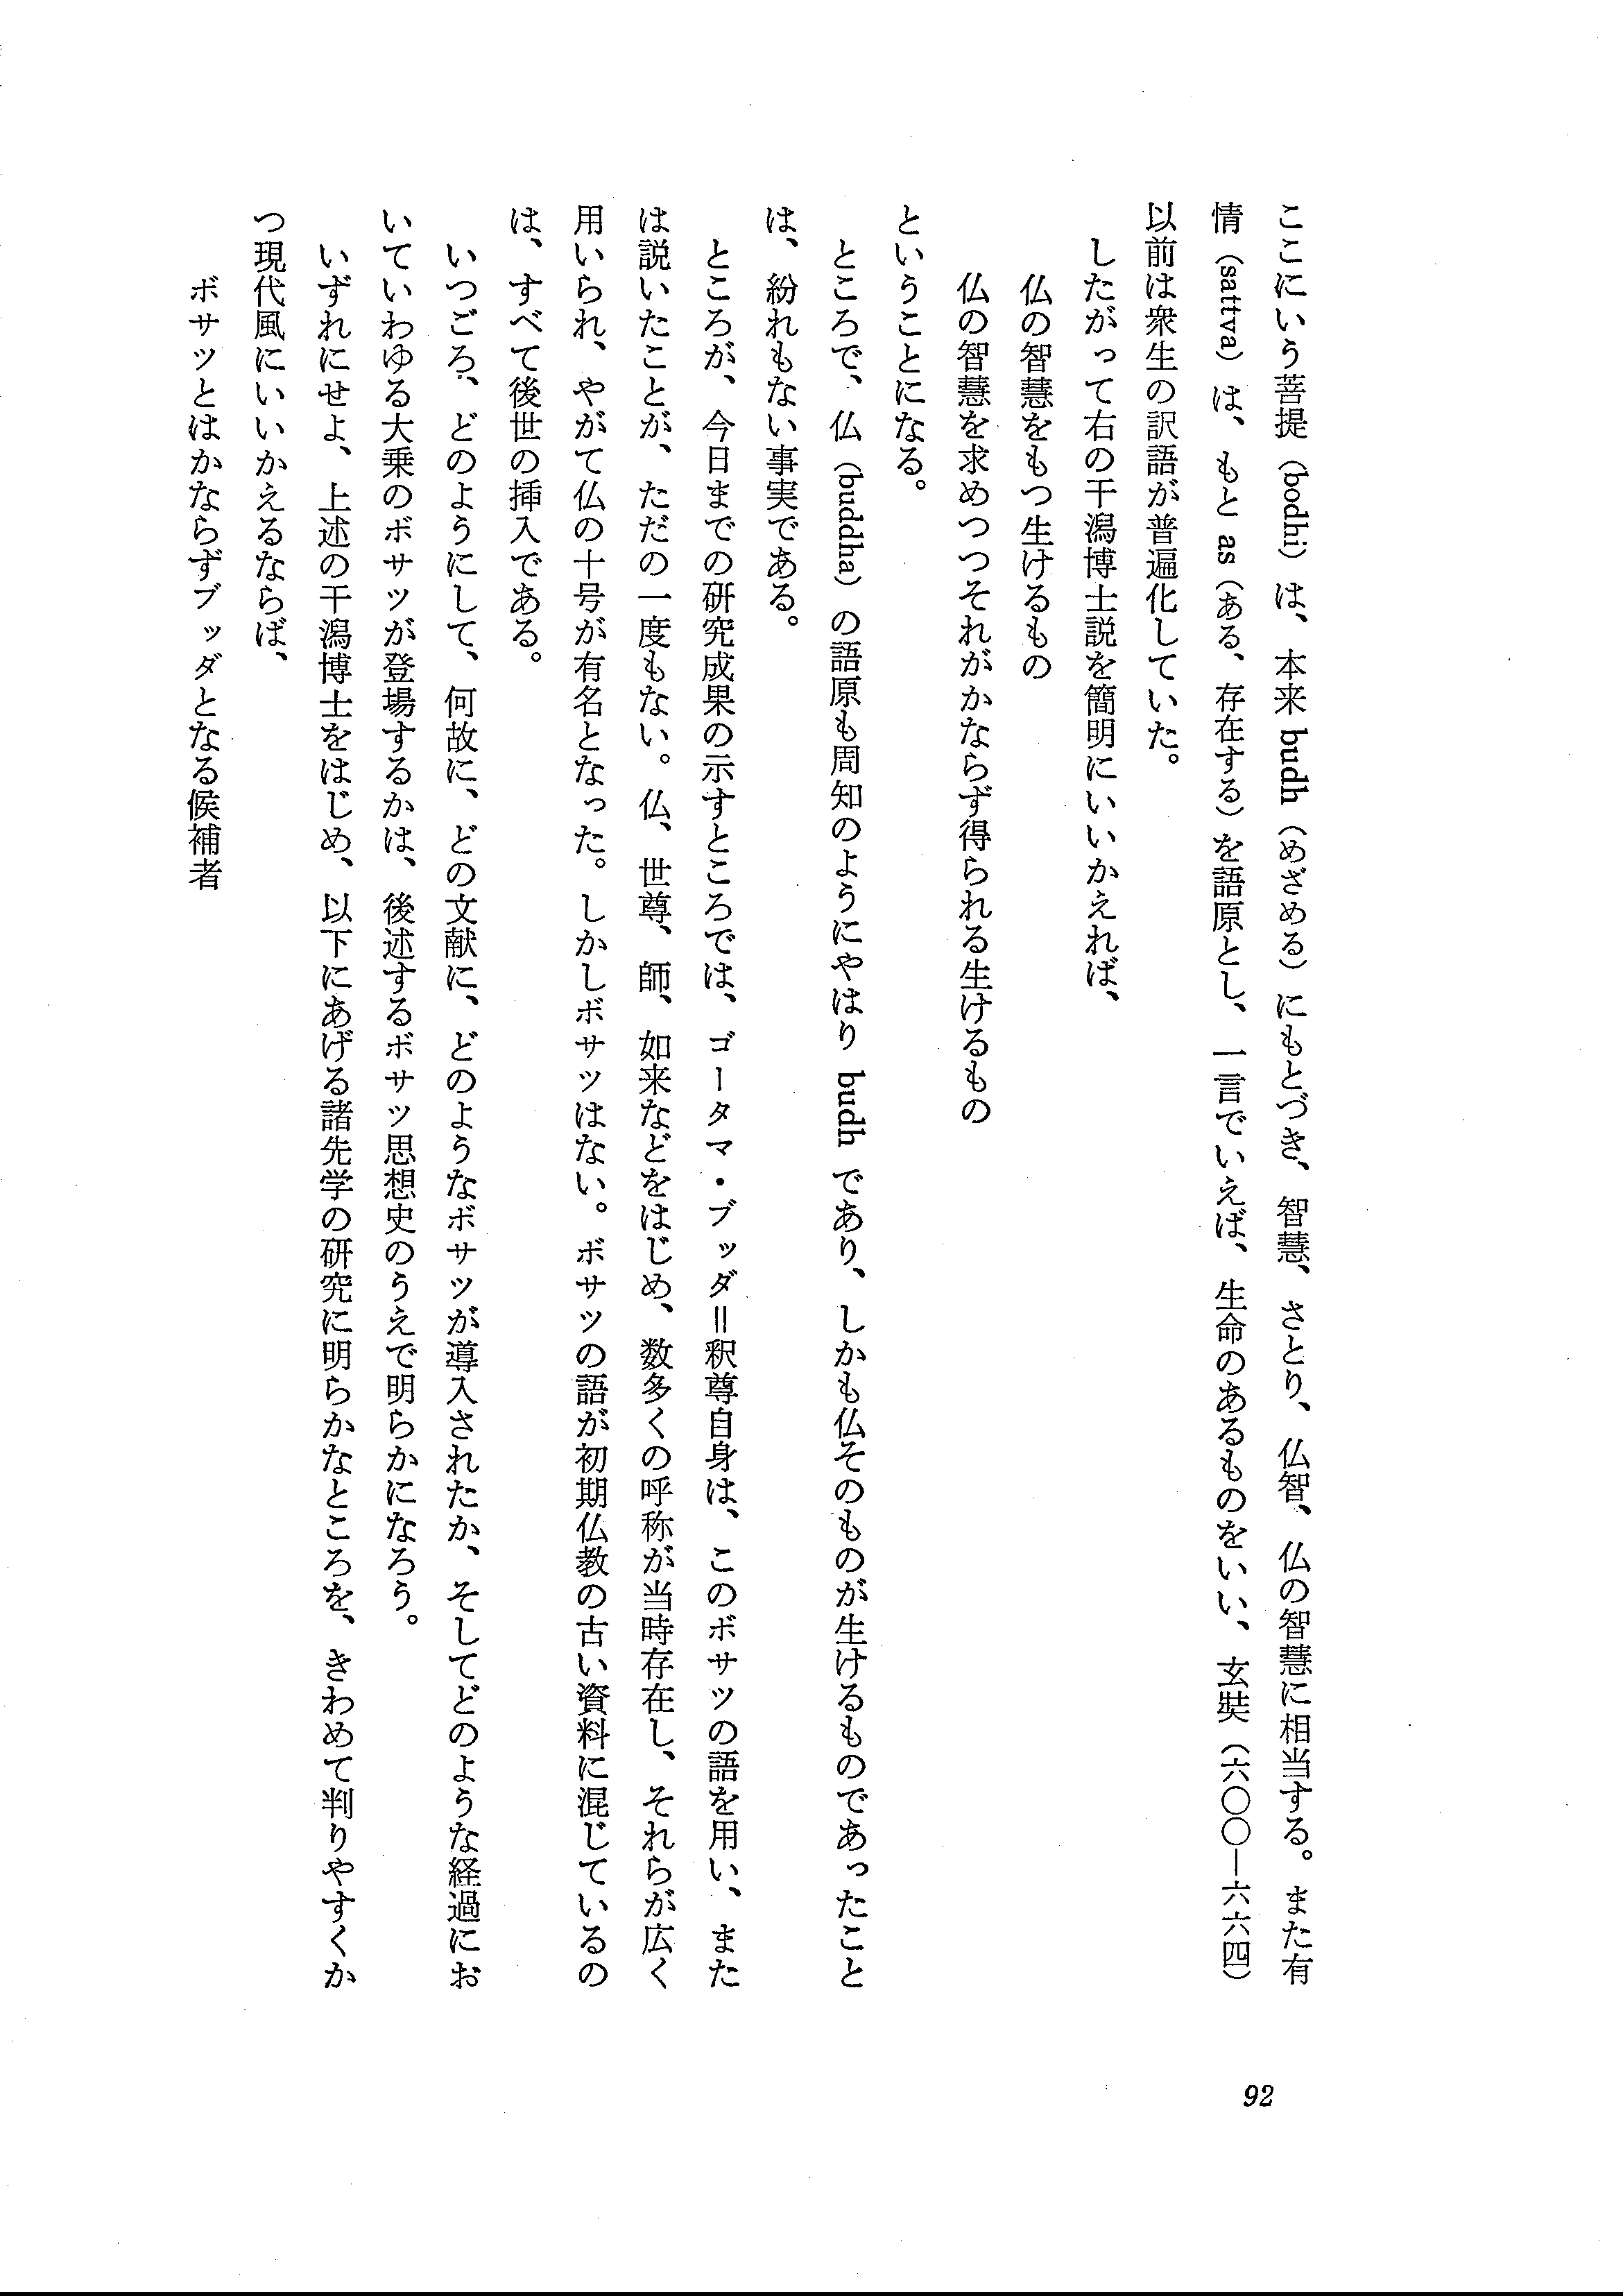 ここにいう菩提（bodhi）は、本来 budh（めざめる）にもとづき、智慧、さとり、仏智、仏の智慧に相当する。また有
情（sattva）は、もと as（ある、存在する）を語原とし、一言でいえば、生命のあるものをいい、玄奘（六〇〇―六六四）
以前は衆生の訳語が普遍化していた。
したがって右の干潟博士説を簡明にいいかえれば、
仏の智慧をもつ生けるもの
仏の智慧を求めつつそれがかならず得られる生けるもの
ということになる。
ところで、仏（buddha）の語原も周知のようにやはり budh であり、しかも仏そのものが生けるものであったこと
は、紛れもない事実である。
ところが、今日までの研究成果の示すところでは、ゴータマ・ブッダ＝釈尊自身は、このボサツの語を用い、また
は説いたことが、ただの一度もない。仏、世尊、師、如来などをはじめ、数多くの呼称が当時存在し、それらが広く
用いられ、やがて仏の十号が有名となった。しかしボサツはない。ボサツの語が初期仏教の古い資料に混じているの
は、すべて後世の挿入である。
いつごろ、どのようにして、何故に、どの文献に、どのようなボサツが導入されたか、そしてどのような経過にお
いていわゆる大乗のボサツが登場するかは、後述するボサツ思想史のうえで明らかになろう。
いずれにせよ、上述の干潟博士をはじめ、以下にあげる諸先学の研究に明らかなところを、きわめて判りやすくか
つ現代風にいいかえるならば、
ボサツとはかならずブッダとなる候補者
92